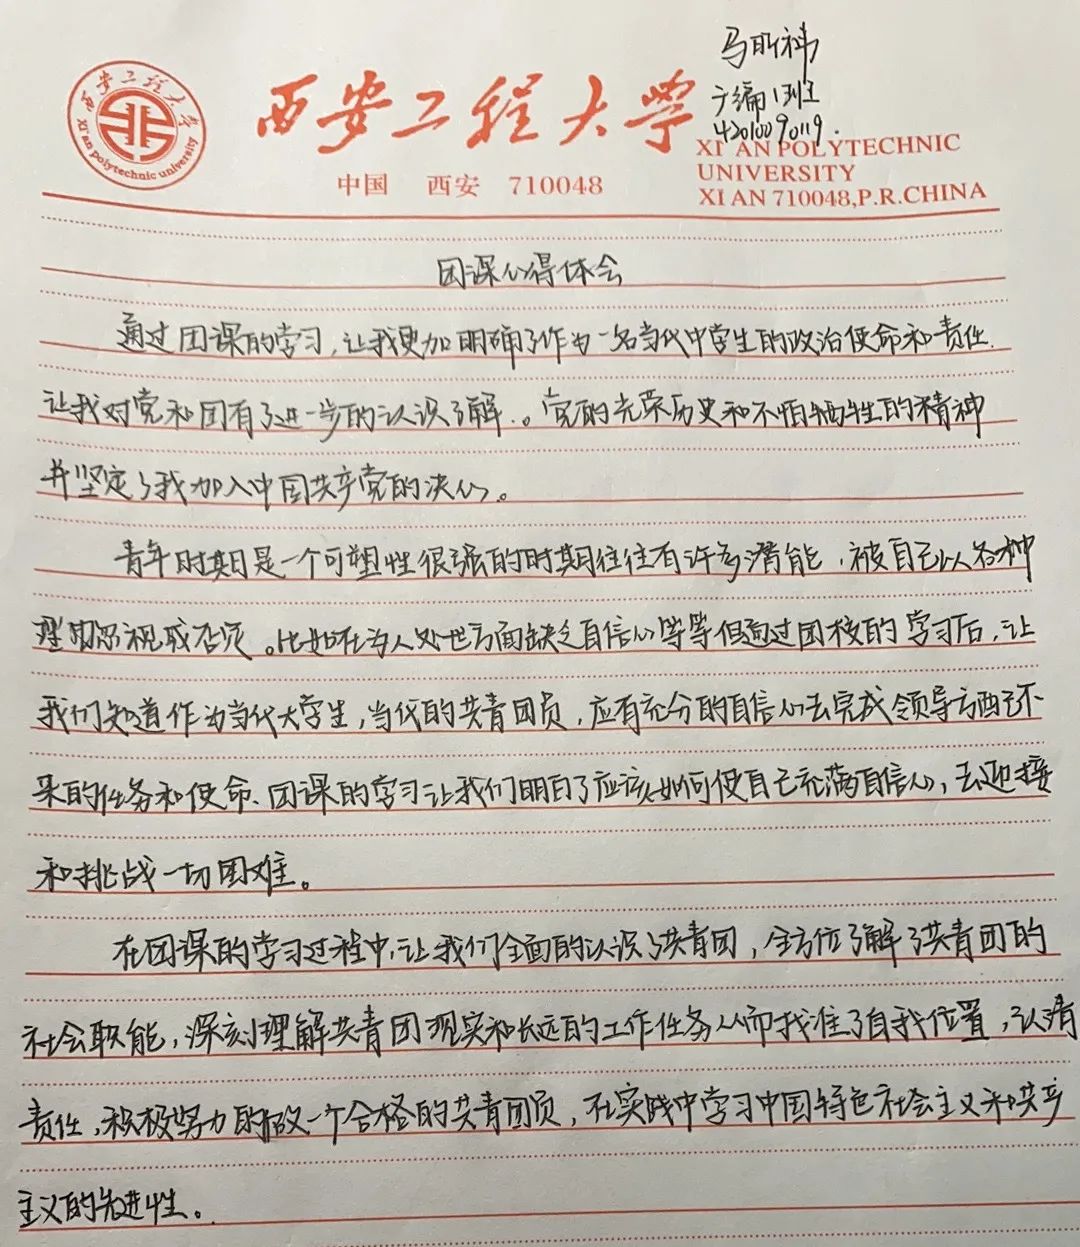 马昕祎
广编1班
42010090119.
西安工程大学
西安工程大学
XI'an polytechnic university
中国 西安 710048
XI AN POLYTECHNIC
UNIVERSITY
XI AN 710048,P.R.CHINA
团课心得体会
通过团课的学习,让我更加明确了作为一名当代中学生的政治使命和责任.
让我对党和团有了进一步的认识了解.。党的光荣历史和不怕牺牲的精神
并坚定了我加入中国共产党的决心。
青年时期是一个可塑性很强的时期往往有许多潜能,被自己以各种
理由忽视或否定。比如在为人处世方面缺乏自信心等等但通过团校的学习后,让
我们知道作为当代大学生,当代的共青团员,应有充分的自信心去完成领导方面己不
来的任务和使命、团课的学习让我们明白了应该如何使自己充满自信心,去迎接
和挑战一切困难。
在团课的学习过程中,让我们全面的认识了共青团,全方位了解了共青团的
社会职能,深刻理解共青团现实和长远的工作任务从而找准了自我位置,认清
责任,积极努力的做一个合格的共青团员,在实践中学习中国特色社会主义和共产
主义的先进性。